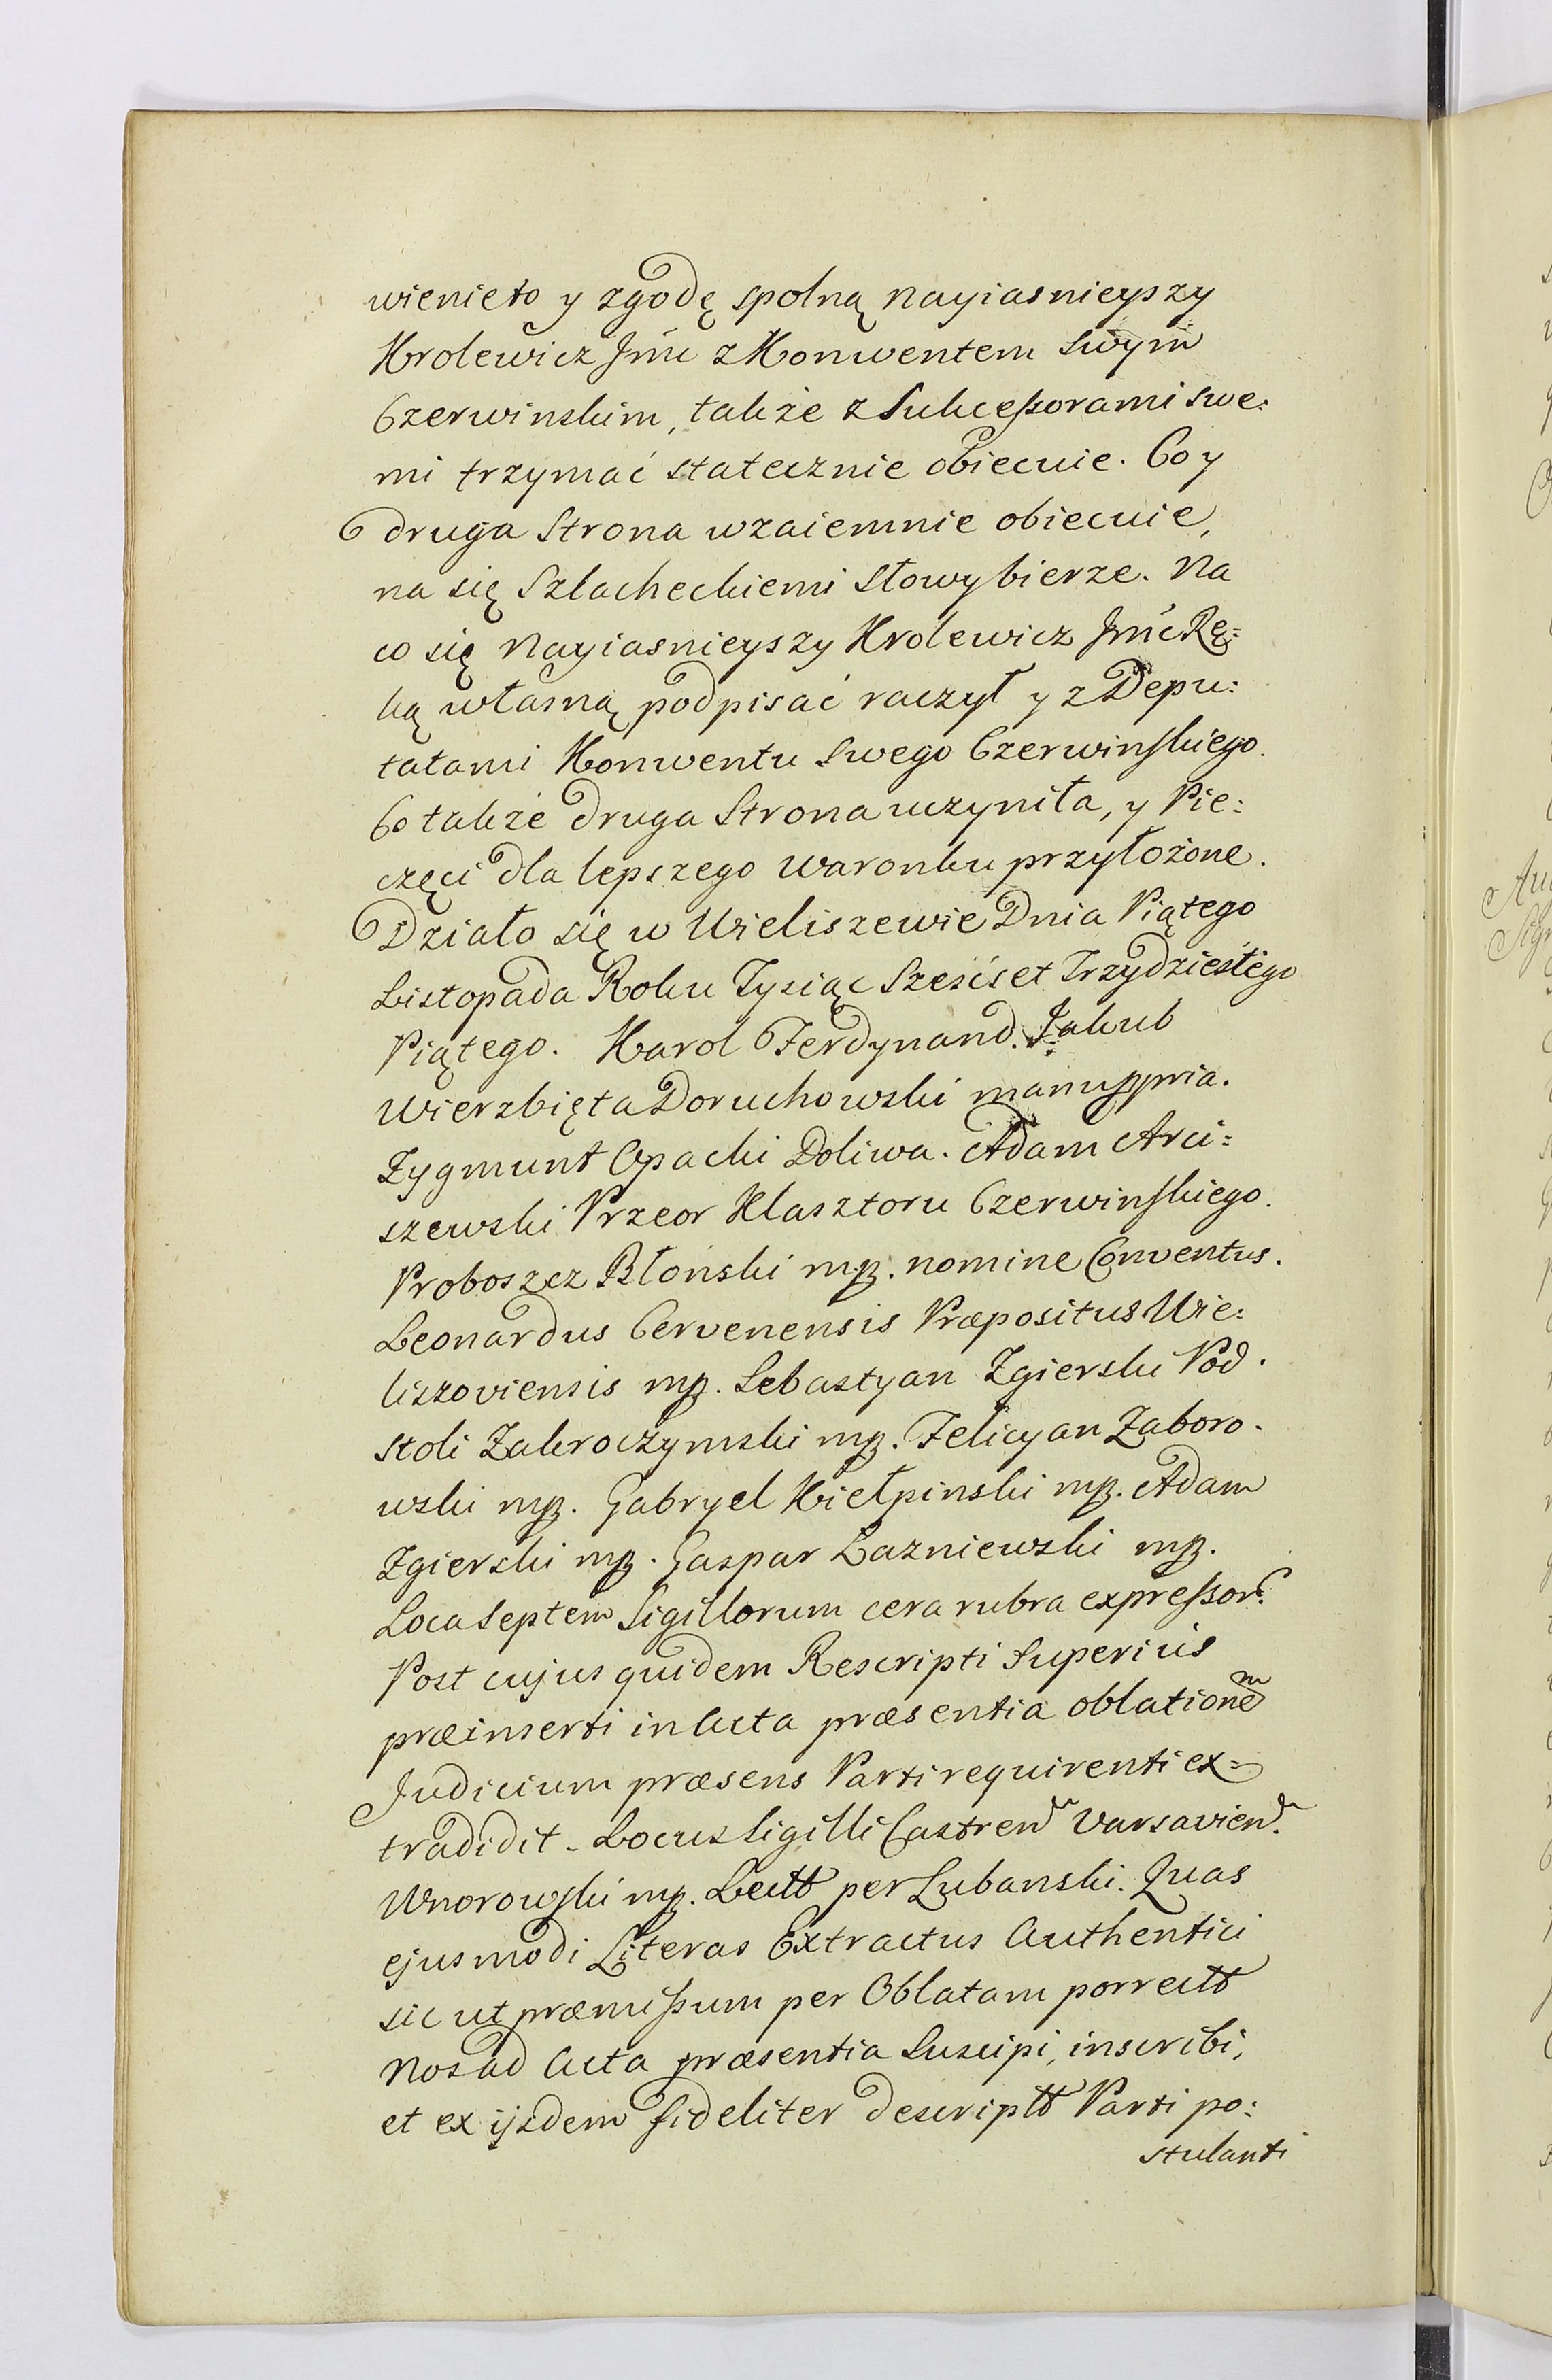 wienieto y zgodę spolną nayiasnieyszy
Krolewicz Jmć z Konwentem swym
Czerwinskim, także z Sukceßorami swe:
mi trzymać statecznie obiecuie. Co y
druga Strona wzaiemnie obiecuie,
na się Szlacheckiemi Słowy bierze. Na
co się Nayiasnieyszy Krolewicz Jmć Rę:
ką własną podpisać raczył y z Depu:
tatami Konwentu swego Czerwinskiego.
Co także druga Strona uczyniła, y Pie:
częci dla lepszego waronku przyłożone.
Działo się w Wieliszewie Dnia Piątego
Listopada Roku Tysiąc Sześćset Trzydziestego
Piątego. Karol Ferdynand. Jakub
Wierzbięta Doruchowski manuppria.
Zygmunt Opacki Doliwa. Adam Arci:
szewski Przeor Klasztoru Czerwinskiego.
Proboszcz Błonski mp. nomine Conventus.
Leonardus Cervenensis Præpositus Wie:
liszoviensis mp. Sebastyan Zgierski Pod.
stoli Zakroczymski mp. Felicyan Zaboro.
wski mp. Gabryel Kiełpinski mp. Adam
Zgierski mp. Gaspar Lazniewski mp.
Loca Septem Sigillorum cera rubra expreßor:
Post cujus quidem Rescripti Superius
præinserti in Acta præsentia oblationem
Judicium præsens Parti requirenti ex=
tradidit. Locus Sigilli Castren Varsavien.
Wnorowski mp. Lectt per Lubanski. Quas
ejusmodi Literas Extractus Authentici
sic ut præmißum per Oblatam porrectt
Nos ad Acta præsentia Suscipi, inscribi,
et ex ijsdem fideliter descriptt Parti po:
stulanti